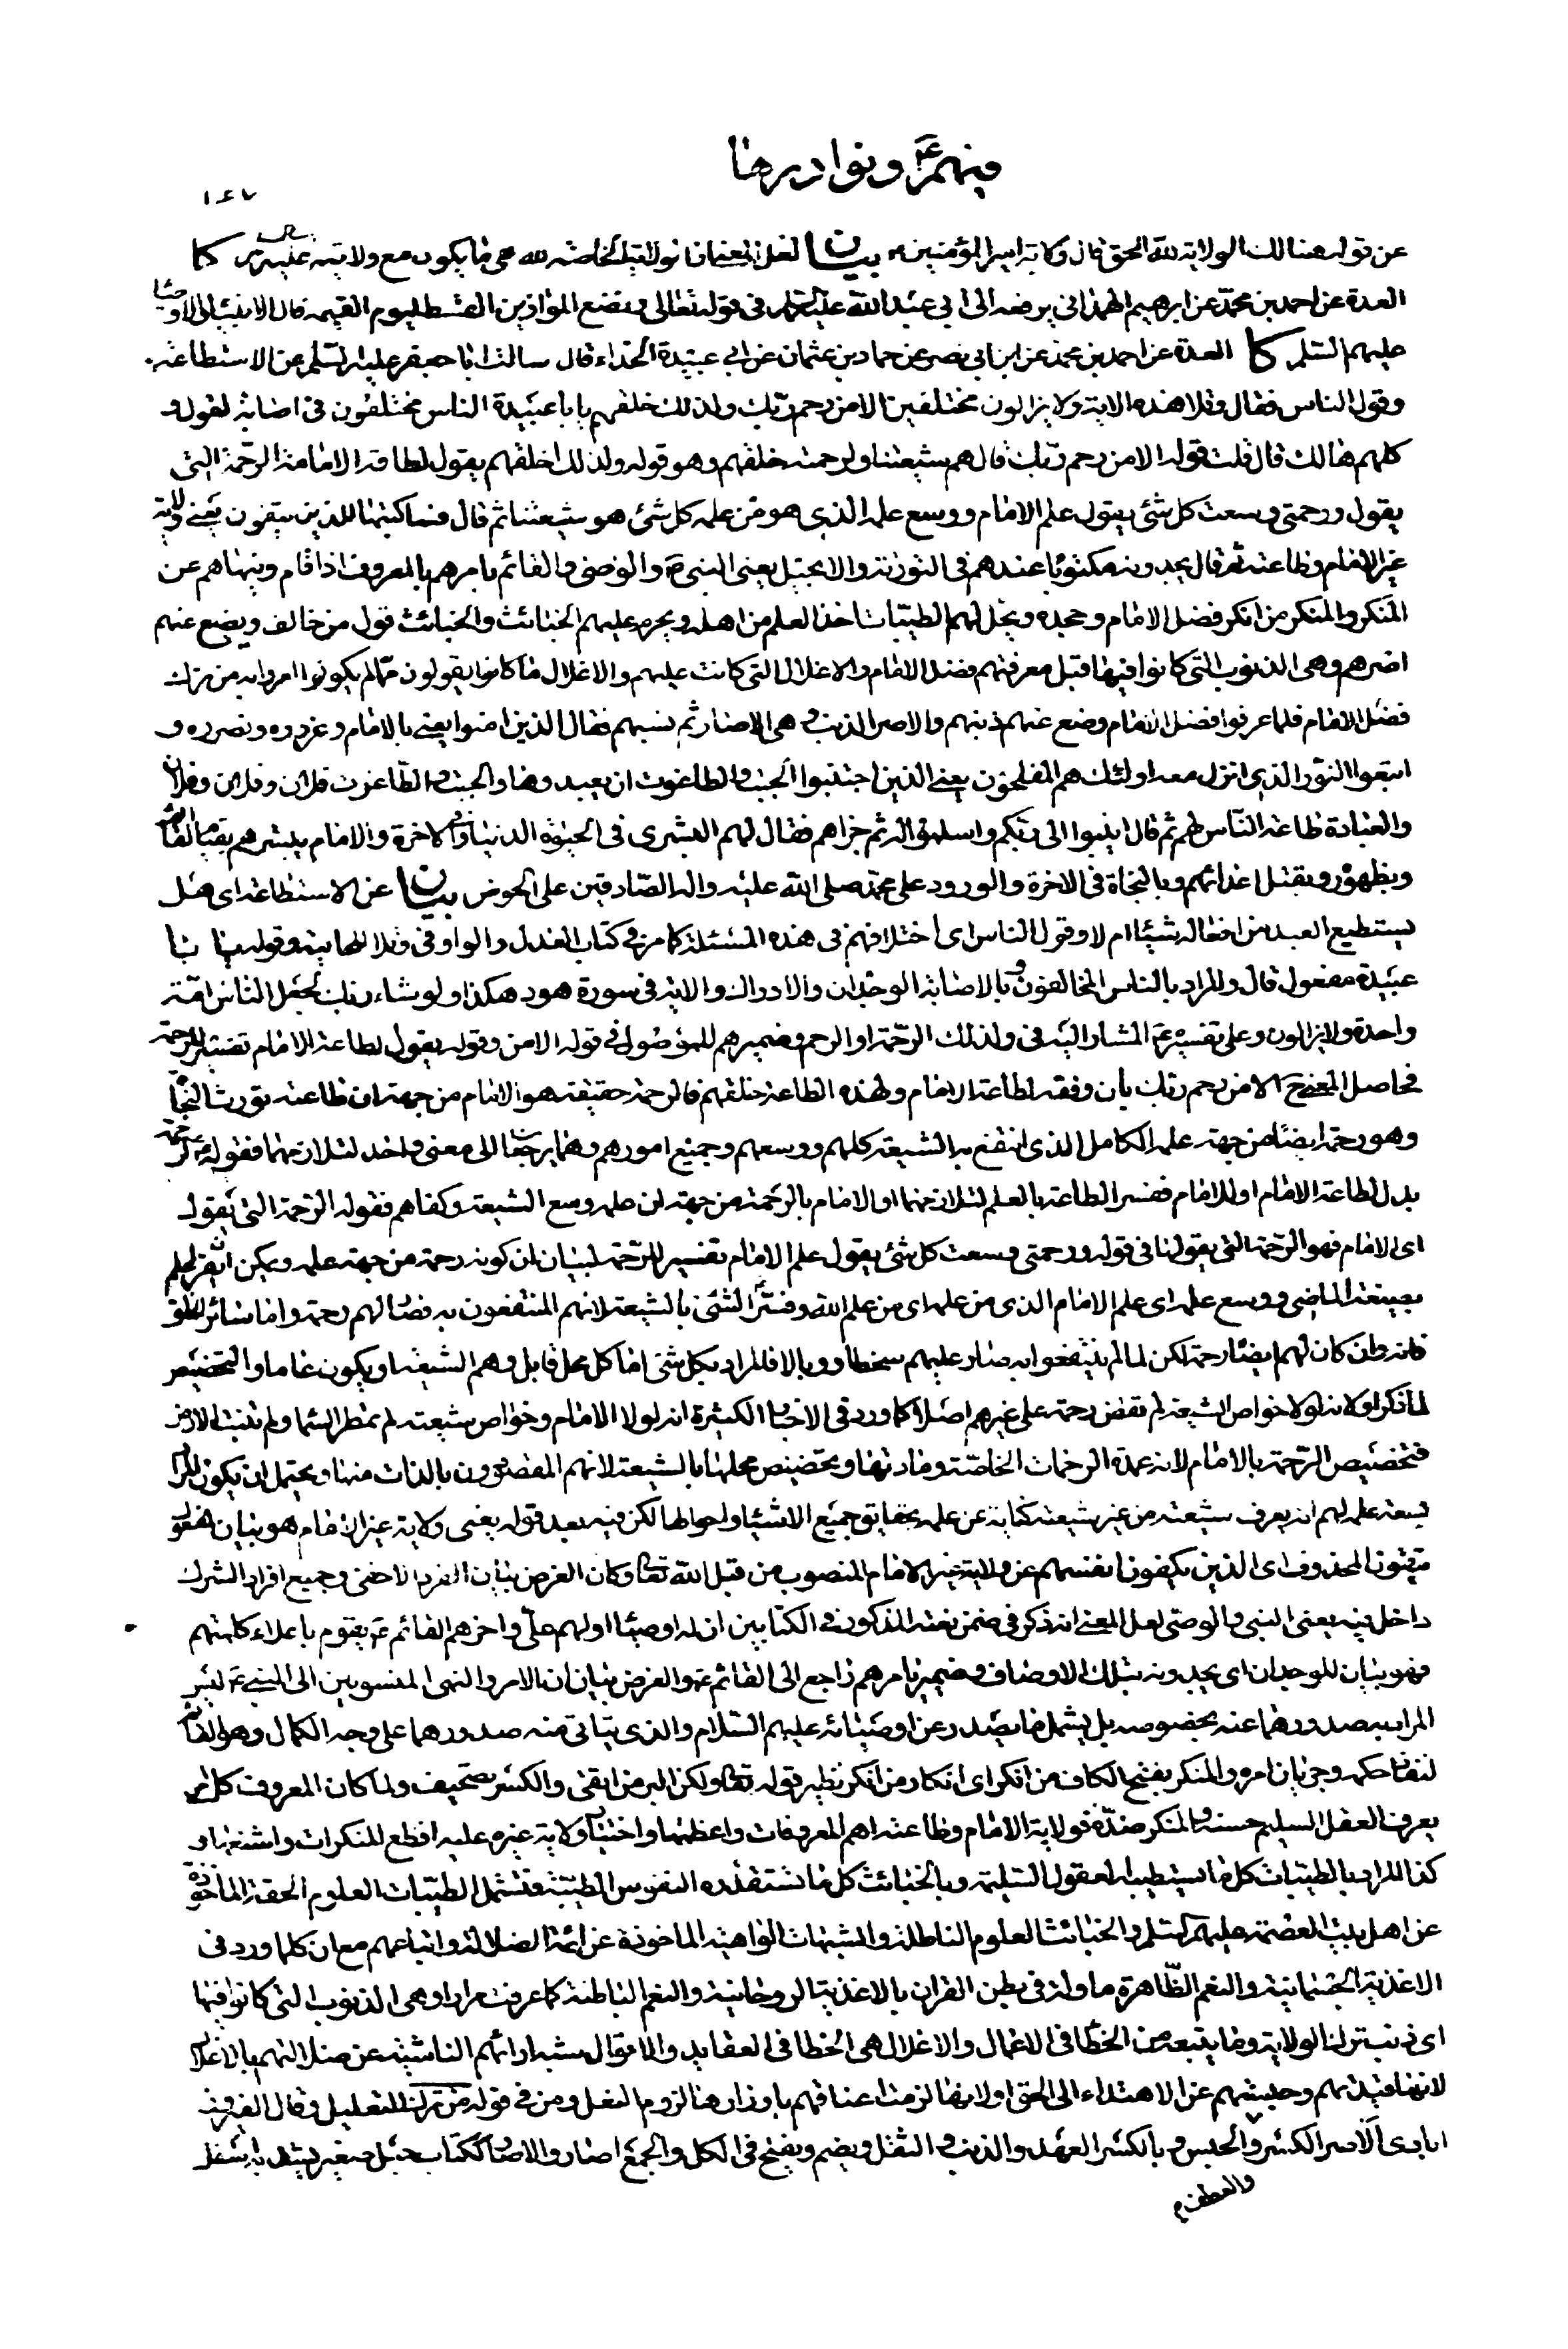 فيهم ع ونوادرها
١٤٧
عن قوله هنالك الولاية لله الحق قال ولاية امير المؤمنين بيان لعل المعنى ان الولاية الخالصة لله هي ما يكون مع ولايته عليه السلام كا
العدة عن احمد بن محمد عن ابرهيم الهمداني يرفعه الى ابي عبد الله عليه السلام في قوله تعالى ونضع الموازين القسط ليوم القيمة قال الانبياء والاوصياء
عليهم السلم كا العدة عن احمد بن محمد عن ابن ابي نصر عن حماد بن عثمان عن ابي عبيدة الحذاء قال سالت ابا جعفر عليه السلم عن الاستطاعة
وقول الناس فقال وتلا هذه الاية ولا يزالون مختلفين الا من رحم ربك ولذلك خلقهم يا با عبيدة الناس مختلفون في اصابة القول و
كلهم هالك قال قلت قوله الا من رحم ربك قال هم شيعتنا ولرحمته خلقهم وهو قوله ولذلك خلقهم يقول لطاعة الامام الرحمة التي
يقول ورحمتي وسعت كل شئ يقول علم الامام ووسع علمه الذي هو من علمه كل شئ هو شيعتنا ثم قال فساكتبها للذين يتقون يعني ولاية
غير الامام وطاعته ثم قال يجدونه مكتوبا عندهم في التورية والانجيل يعني النبي ص والوصي والقائم يامرهم بالمعروف اذا قام وينهاهم عن
المنكر والمنكر من انكر فضل الامام وجحده ويحل لهم الطيبات اخذ العلم من اهله ويحرم عليهم الخبائث والخبائث قول من خالف ويضع عنهم
اصرهم وهي الذنوب التي كانوا فيها قبل معرفتهم فضل الامام والاغلال التي كانت عليهم والاغلال ما كانوا يقولون مما لم يكونوا امروا به من ترك
فضل الامام فلما عرفوا فضل الامام وضع عنهم ذنبهم والاصر الذنب وهي الاصار ثم نسبهم فقال الذين امنوا يعني بالامام وعزروه ونصروه و
اتبعوا النور الذي انزل معه اولئك هم المفلحون يعني الذين اجتنبوا الجبت والطاغوت ان يعبدوها والجبت والطاغوت فلان وفلان وفلان
والعبادة طاعة الناس لهم ثم قال انيبوا الى ربكم واسلموا له ثم جزاهم فقال لهم البشرى في الحيوة الدنيا وفي الاخرة والامام يبشرهم بقيام القائم
وبظهوره وبقتل اعدائهم وبالنجاة في الاخرة والورود على محمد صلى الله عليه واله الصادقين على الحوض بيان عن الاستطاعة اي هل
يستطيع العبد من افعاله شيئا ام لا وقول الناس اي اختلافهم في هذه المسئلة كما مر في كتاب العدل والواو في وتلا للحالية وقوله يا با
عبيدة مفعول قال والمراد بالناس المخالفون وبالاصابة الوجدان والادراك والاية في سورة هود هكذا ولو شاء ربك لجعل الناس امة
واحدة ولا يزالون وعلى تفسيره ع المشار اليه في ولذلك الرحمة او الرحم وضمير هم للموصول في قوله الا من وقوله يقول لطاعة الامام تفسير للرحمة
فحاصل المعنى ح الا من رحم ربك بان وفقه لطاعة الامام ولهذه الطاعة خلقهم فالرحمة حقيقة هو الامام من جهة ان طاعته تورث النجاة
وهو رحمة ايضا من جهة علمه الكامل الذي انتفع به الشيعة كلهم ووسعهم وجميع امورهم وهما يرجعان الى معنى واحد لتلازمهما فقوله ع الرحمة
بدل لطاعة الامام او للامام ففسر الطاعة بالعلم لتلازمهما او الامام بالرحمة من جهة ان علمه وسع الشيعة وكفاهم فقوله الرحمة التي يقول
اي الامام فهو الرحمة التي يقولها في قوله ورحمتي وسعت كل شئ يقول علم الامام تفسير للرحمة لبيان ان كونه رحمة من جهة علمه ويمكن ان يقرا علم
بصيغة الماضي ووسع علمه اي علم الامام الذي من علمه اي من علم الله وفسر ع الشئ بالشيعة لانهم المنتفعون به فصار لهم رحمة واما سائر الخلق
فانه وان كان لهم ايضا رحمة لكن لما لم ينتفعوا به صار عليهم سخطا ووبالا فالمراد بكل شئ اما كل محل قابل وهم الشيعة او يكون عاما والتخصيص
لما ذكر او لانه لولا خواص الشيعة لم تفض رحمة على غيرهم اصلا كما ورد في الاخبار الكثيرة انه لولا الامام وخواص شيعته لم تمطر السماء ولم تنبت الارض
فتخصيص الرحمة بالامام لانه عمدة الرحمات الخاصة ومادتها وتخصيص محلها بالشيعة لانهم المقصودون بالذات منها ويحتمل ان يكون المراد
بسعة علمه لهم انه يعرف شيعته من غير شيعته كناية عن علمه بحقايق جميع الاشياء واحوالها لكن فيه بعد قوله يعني ولاية غير الامام هو بيان لمفعول
يتقون المحذوف اي الذين يكفون انفسهم عن ولاية غير الامام المنصوب من قبل الله تعا وكان الغرض بيان الفرد الاخفى وجميع افراد الشرك
داخل فيه يعني النبي والوصي لعل المعنى انه ذكر في ضمن نعته المذكور في الكتابين ان له اوصياء اولهم علي واخرهم القائم ع يقوم باعلاء كلمتهم
فهو بيان للوجدان اي يجدونه بتلك الاوصاف وضمير يامرهم راجع الى القائم ع والغرض بيان ان الامر والنهي المنسوبين الى النبي ع ليس
المراد به صدورهما عنه بخصوصه بل يشمل ما يصدر عن اوصيائه عليهم السلام والذي يتاتى منه صدورهما على وجه الكمال وهو القائم
لنفاذ حكمه وجريان امره والمنكر بفتح الكاف من انكر اي انكار من انكر نظير قوله تعا ولكن البر من اتقى والكسر تصحيف ولما كان المعروف كل امر
يعرف العقل السليم حسنه والمنكر ضده فولاية الامام وطاعته اهم المعروفات واعظمها واختيار ولاية غيره عليه افظع المنكرات واشنعها و
كذا المراد بالطيبات كل ما يستطيبه العقول السليمة وبالخبائث كل ما تستقذره النفوس الطيبة فتشمل الطيبات العلوم الحقة الماخوذة
عن اهل بيت العصمة عليهم السلم والخبائث العلوم الباطلة والشبهات الواهية الماخوذة عن ائمة الضلالة واتباعهم مع ان كلما ورد في
الاغذية الجسمانية والنعم الظاهرة ماولة في بطن القران بالاغذية الروحانية والنعم الباطنة كما عرفت مرارا وهي الذنوب التي كانوا فيها
اي ذنب ترك الولاية وما يتبعه من الخطا في الاعمال والاغلال هي الخطا في العقايد والاقوال شبه ارائهم الناشئة عن ضلالتهم بالاغلال
لانها قيدتهم وحبستهم عن الاهتداء الى الحق او لانها لزمت اعناقهم باوزارها لزوم الغل ومن في قوله من ترك للتعليل وقال الفيروز
ابادي الاصر الكسر والحبس وبالكسر العهد والذنب والثقل ويضم ويفتح في الكل والجمع اصار والاصار ككتاب حبل صغير يشد به اسفل
والعطف م